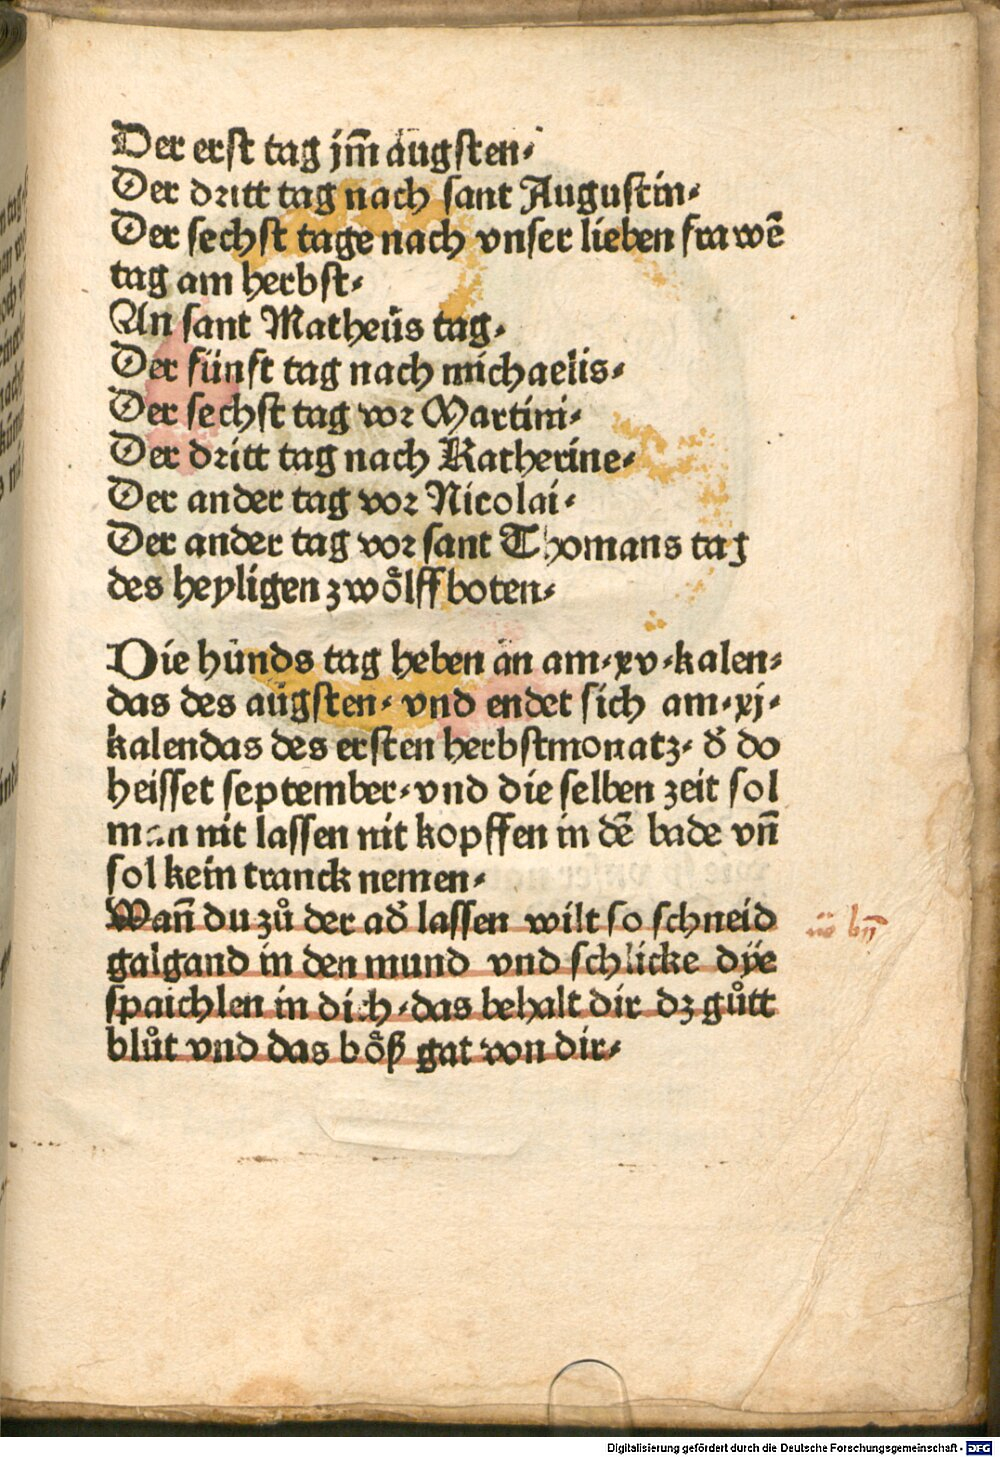 Der erst tag jm̄ augsten·
Der dritt tag nach sant Augustin·
Der sechst tage nach vnser lieben frawē
tag am herbst·
An sant Matheüs tag·
Der fünft tag nach michaelis·
Der sechst tag vor Martini·
Der dritt tag nach Katherine·
Der ander tag vor Nicolai·
Der ander tag vor sant Thomans tag
des heyligen zwoͤlffboten·
Die hunds tag heben an am·xv·kalen⸗
das des augsten· vnd endet sich am·xj·
kalendas des ersten herbstmonatz· d̄ do
heisset september·vnd die selben zeit sol
man nit lassen nit kopffen in dē bade vn̄
sol kein tranck nemen·
Wan̄ du zů der ad̄ lassen wilt so schneid
galgand in den mund vnd schlicke dÿe
spaichlen in dich·das behalt dir dz gůtt
blůt vnd das boͤß gat von dir·
Digitalisierung gefördert durch die Deutsche Forschungsgemeinschaft - DFG